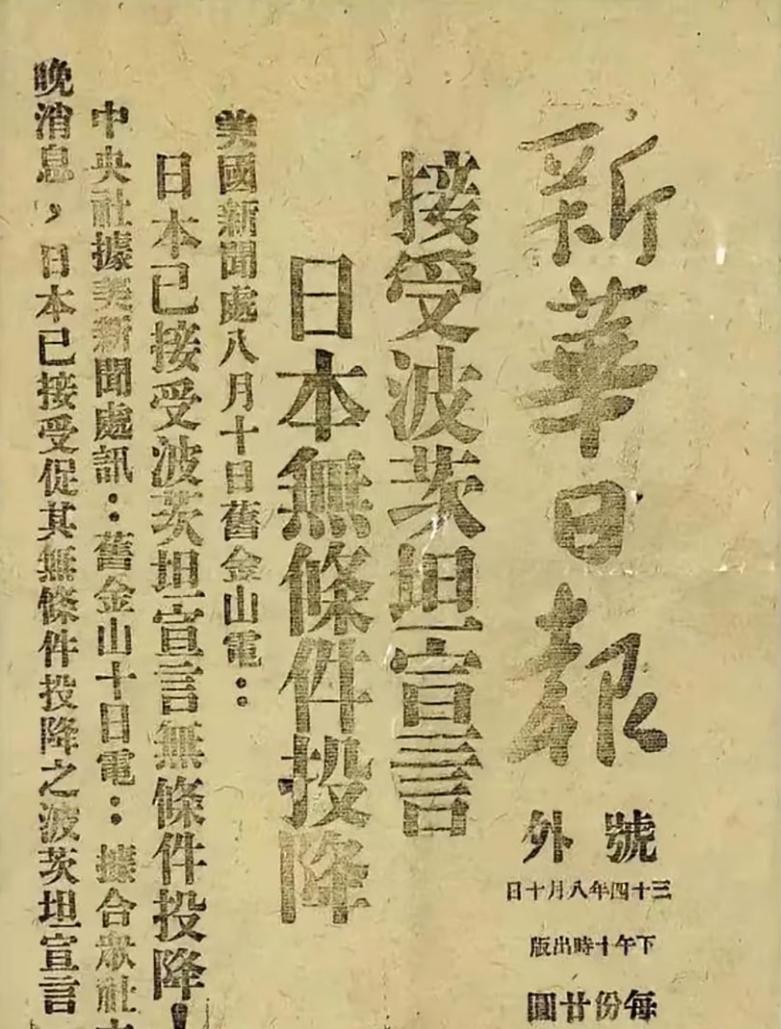 新華日報
號外
三十四年八月十日
下午十時出版
每份廿圓
接受波茨坦宣言
日本無條件投降
美國新聞處八月十日舊金山電：
日本已接受波茨坦宣言無條件投降！
中央社據美新聞處訊：舊金山十日電：據合眾社
晚消息，日本已接受促其無條件投降之波茨坦宣言